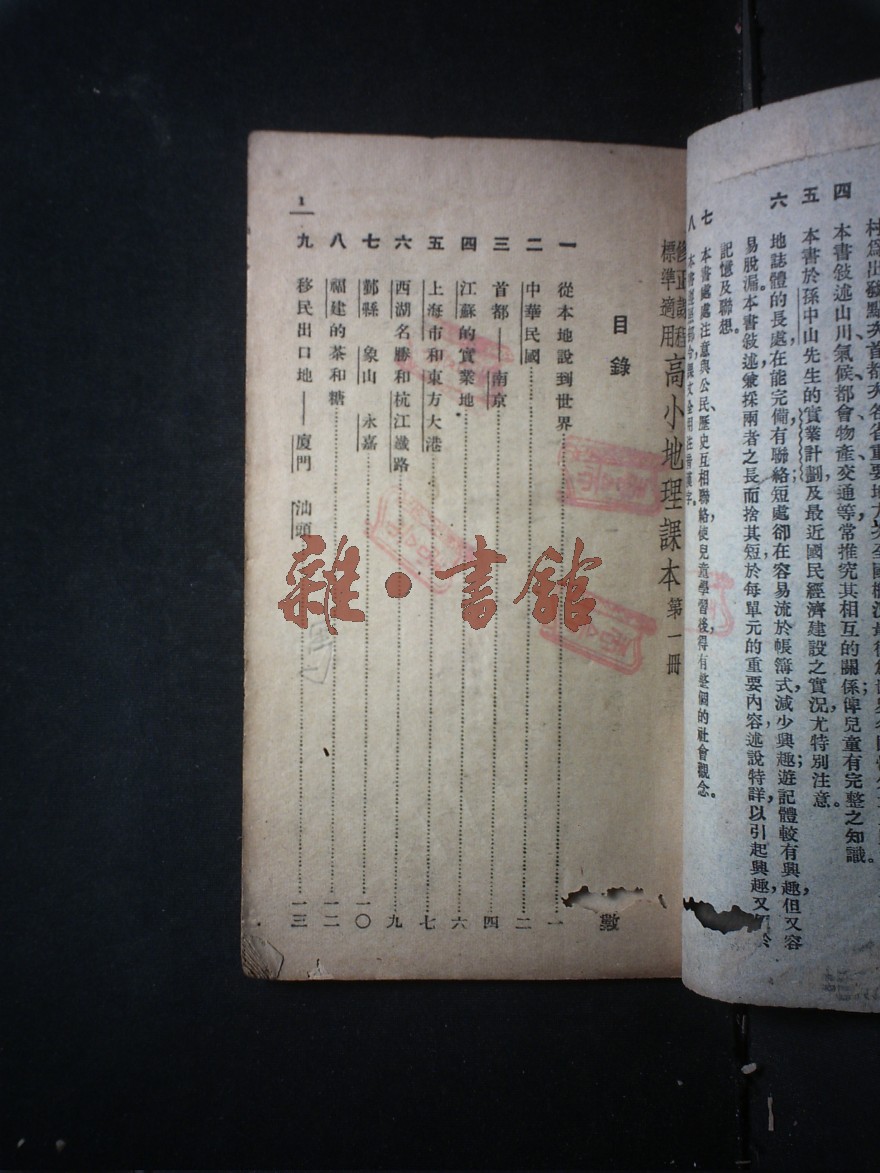 四 本書敍述山川氣候都會物產交通等，常推究其相互的關係；俾兒童有完整之知識。
五 本書於孫中山先生的實業計劃及最近國民經濟建設之實況，尤特別注意。
六 地誌體的長處，在能完備有聯絡；短處卻在容易流於帳簿式，減少興趣；遊記體較有興趣，但又容
易脫漏。本書敍述，兼採兩者之長而捨其短，於每單元的重要內容，述說特詳，以引起興趣，又
記憶及聯想。
七 本書處處注意與公民、歷史互相聯絡，使兒童學習後，得有整個的社會觀念。
八
修正課程
標準適用
高小地理課本 第一冊
目錄
數
一 從本地說到世界 一
二 中華民國 二
三 首都——南京 四
四 江蘇的實業地 六
五 上海市和東方大港 七
六 西湖名勝和杭江鐵路 九
七 鄞縣 象山 永嘉 一〇
八 福建的茶和糖 一二
九 移民出口地——廈門 汕頭 一三
1
雜·書館